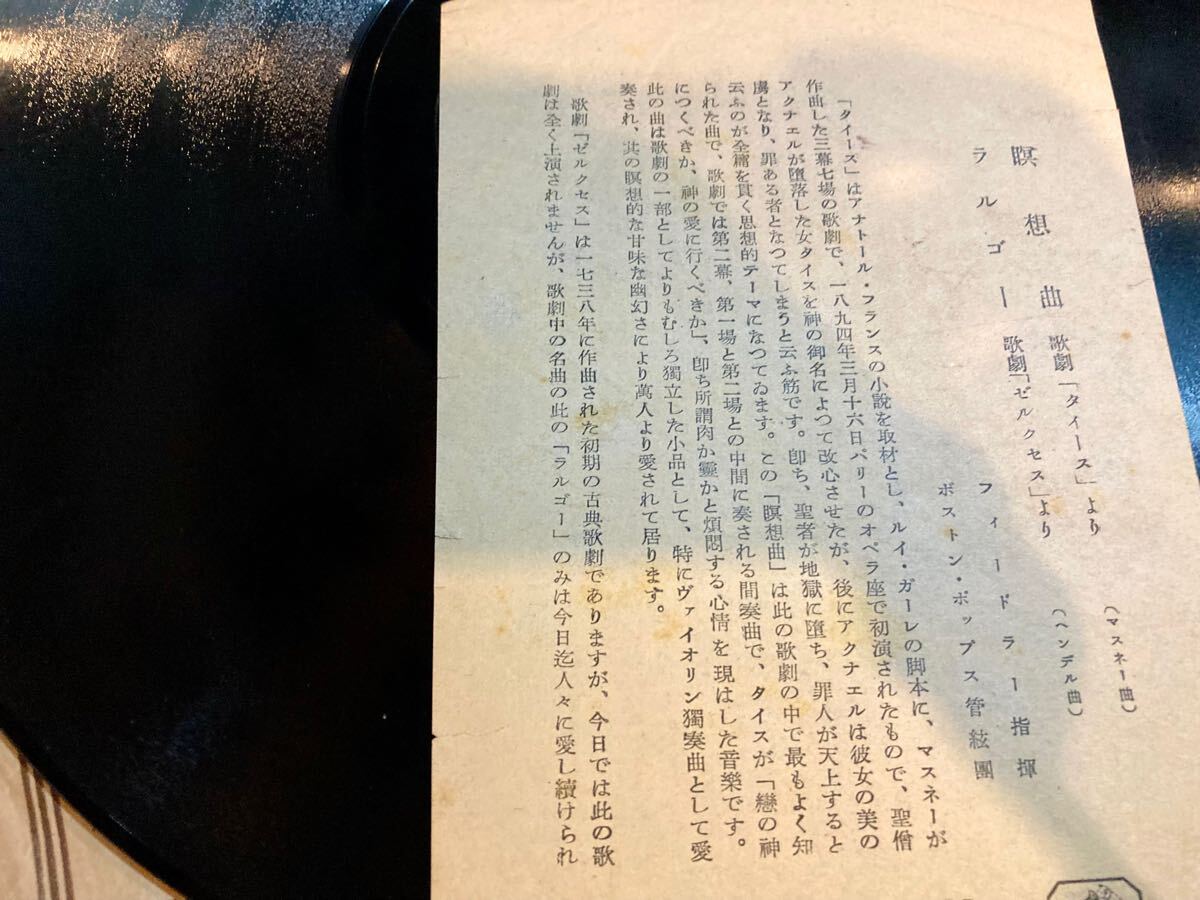 瞑想曲 歌劇「タイース」より (マスネー曲)
ラルゴー 歌劇「ゼルクセス」より (ヘンデル曲)
フィードラー指揮
ボストン・ポップス管絃團
「タイース」はアナトール・フランスの小說を取材とし、ルイ・ガーレの脚本に、マスネーが
作曲した三幕七場の歌劇で、一八九四年三月十六日パリーのオペラ座で初演されたもので、聖僧
アクナエルが墮落した女タイスを神の御名によつて改心させたが、後にアクナエルは彼女の美の
虜となり、罪ある者となつてしまうと云ふ筋です。卽ち、聖者が地獄に墮ち、罪人が天上すると
云ふのが全篇を貫く思想的テーマになつてゐます。この「瞑想曲」は此の歌劇の中で最もよく知
られた曲で、歌劇では第二幕、第一場と第二場との中間に奏される間奏曲で、タイスが「戀の神
につくべきか、神の愛に行くべきか」、卽ち所謂肉か靈かと煩悶する心情を現はした音樂です。
此の曲は歌劇の一部としてよりもむしろ獨立した小品として、特にヴァイオリン獨奏曲として愛
奏され、其の瞑想的な甘味な幽幻さにより萬人より愛されて居ります。
歌劇「ゼルクセス」は一七三八年に作曲された初期の古典歌劇でありますが、今日では此の歌
劇は全く上演されませんが、歌劇中の名曲の此の「ラルゴー」のみは今日迄人々に愛し續けられ